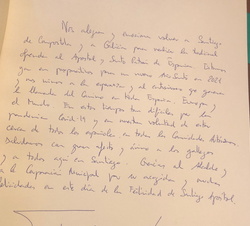 Nos alegra y emociona volver a Santiago
de Compostela, y a Galicia para realizar la tradicional
ofrenda al Apóstol y Santo Patrón de España. Estamos
que en preparativos para un nuevo Año Santo en 2021
y nos unimos a la expectación y el entusiasmo que genera
la llamada del Camino en toda España, Europa y
el Mundo. En estos tiempos tan difíciles por la
pandemia Covid-19 y en nuestra voluntad de estar
cerca de todos los españoles en todas las Comunidades Autónomas
saludamos con gran afecto y ánimo a los gallegos
y a todos aquí en Santiago. Gracias al Alcalde y
a la Corporación Municipal por su acogida y muchas
felicidades en este día de la Festividad de Santiago Apóstol.